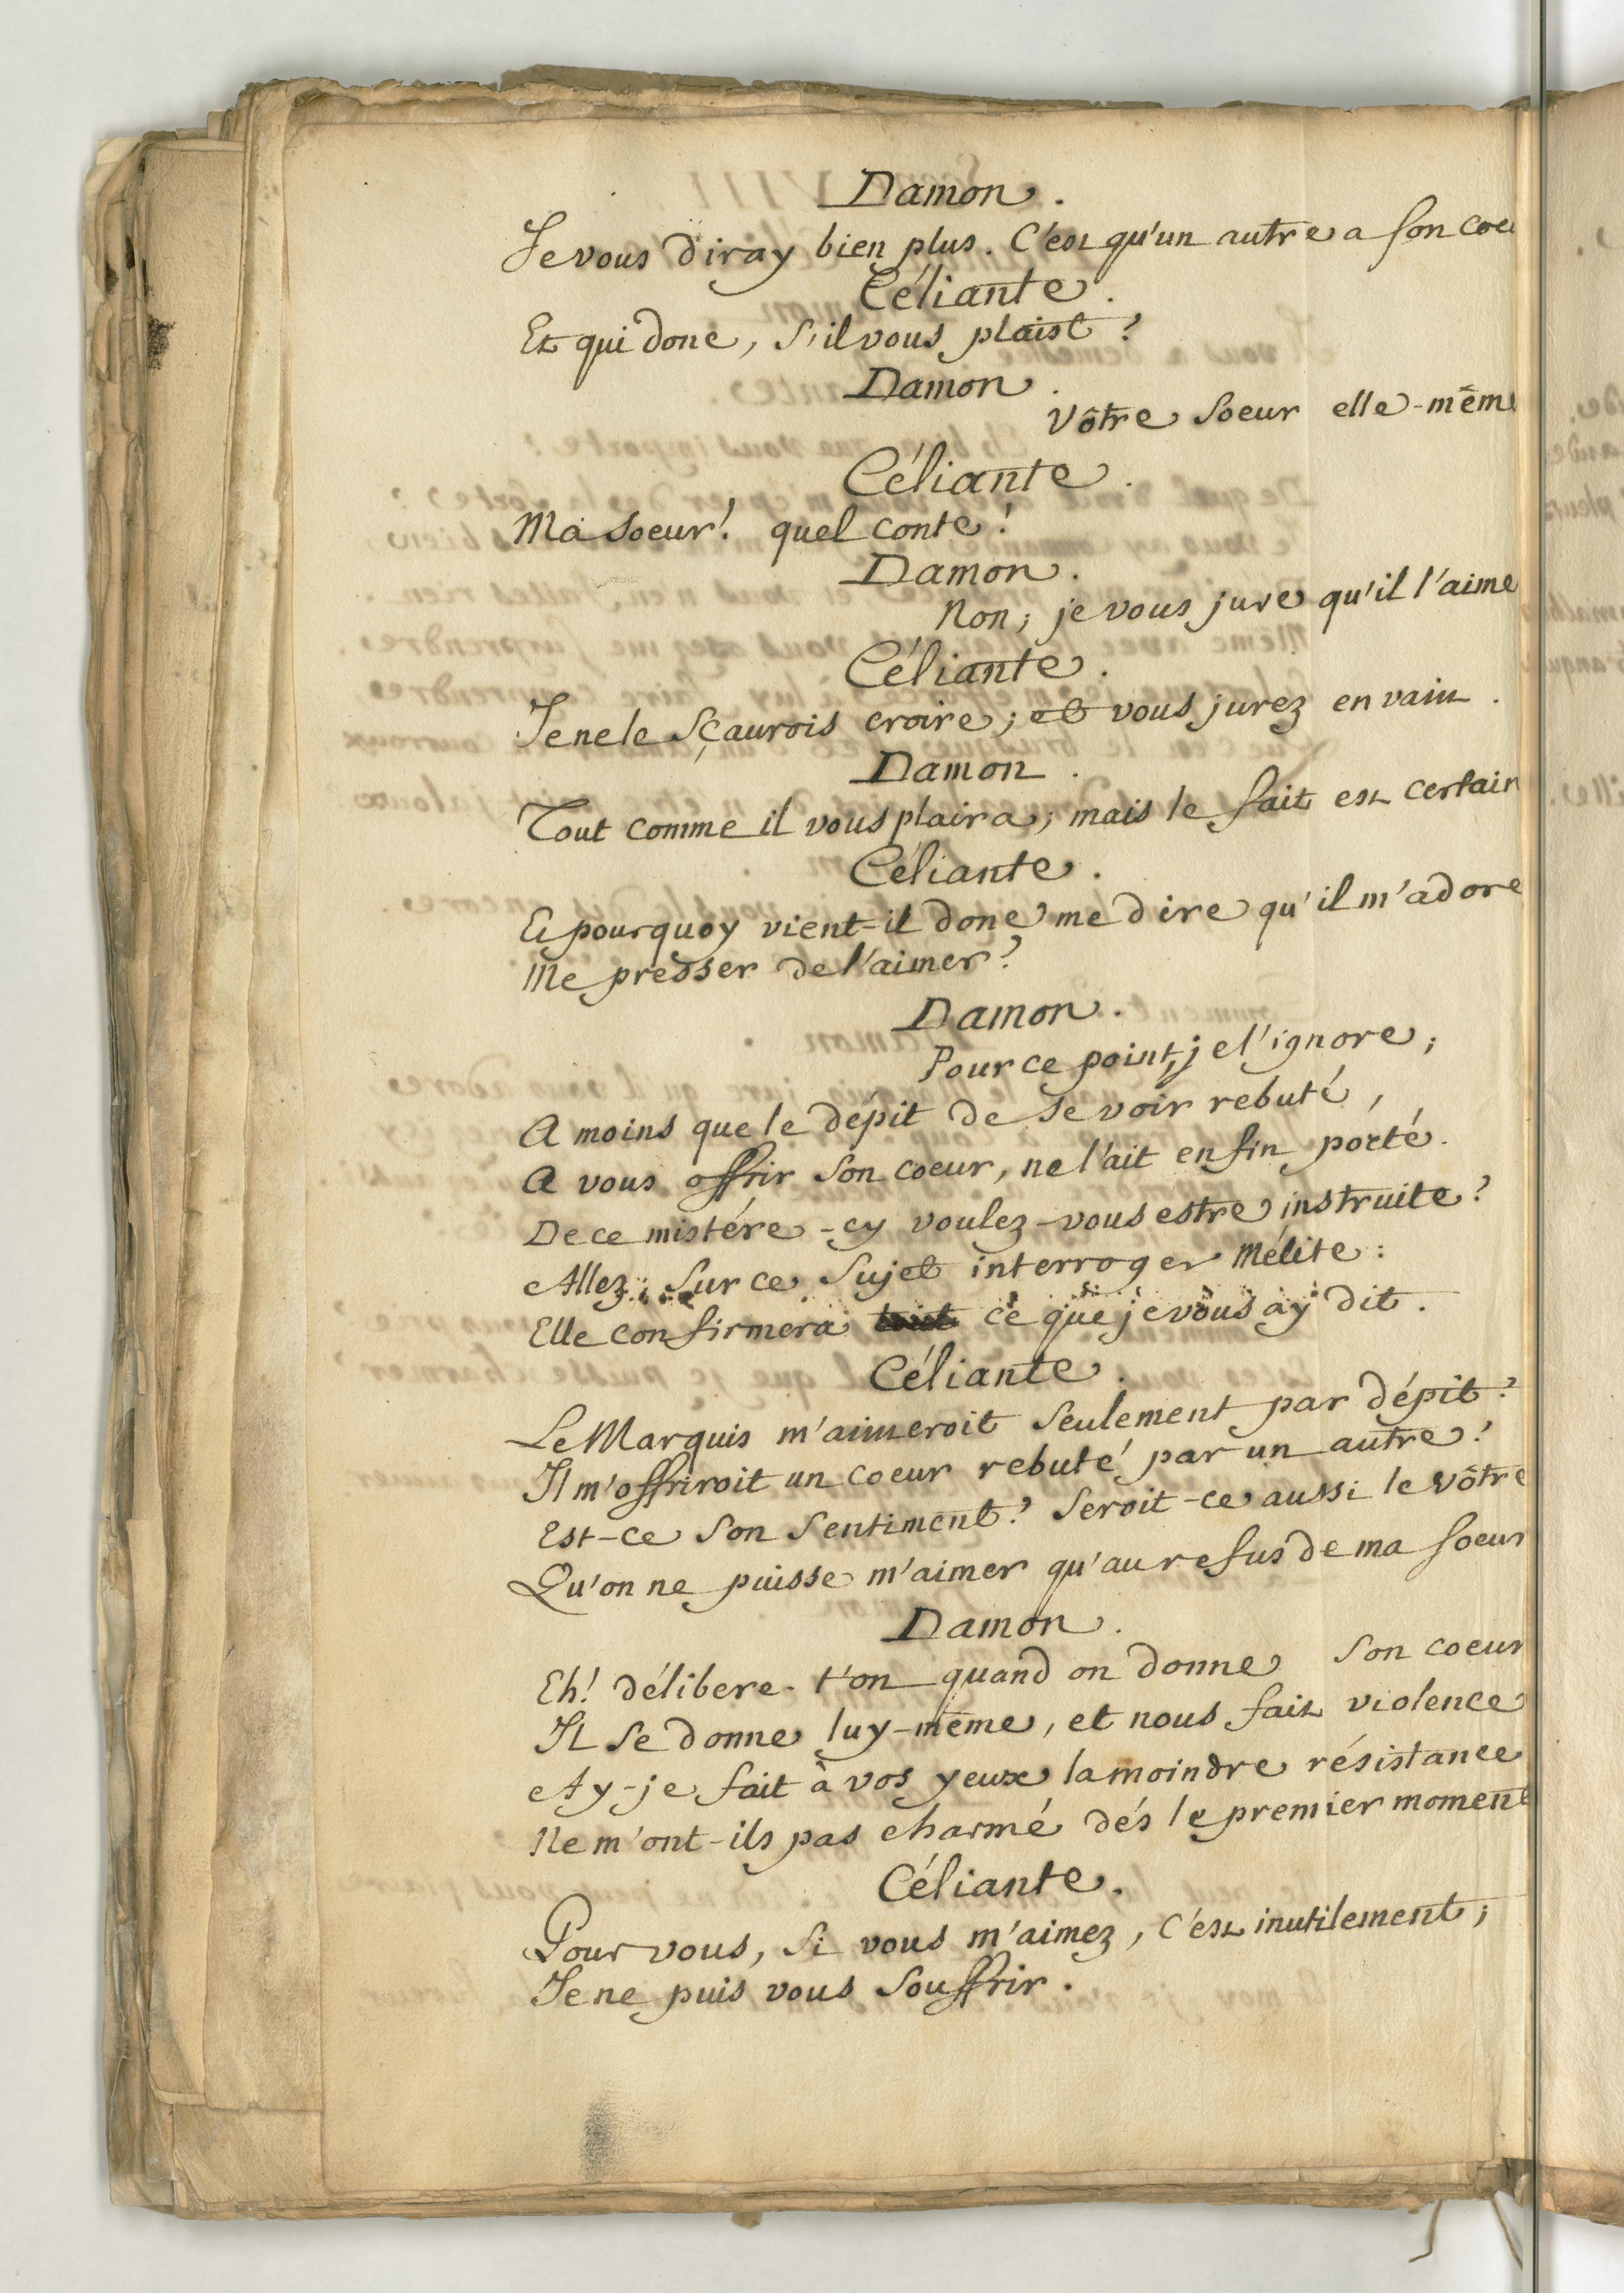 Damon.
Je vous diray bien plus. C'est qu'un autre a son coeu
Céliante.
Et qui donc, s'il vous plaist?
Damon.
Vôtre soeur elle-mêm
Céliante.
Ma soeur! quel conte!
Damon.
Non; je vous jure qu'il l'aime
Céliante.
Je ne le sçaurois croire; et vous jurez en vain.
Damon.
Tout comme il vous plaira; mais le fait est certain
Céliante.
Et pourquoy vient-il donc me dire qu'il m'adore
Me presser de l'aimer?
Damon.
Pour ce point, je l'ignore;
A moins que le dépit de se voir rebuté,
A vous offrir son coeur, ne l'ait enfin porté.
De ce mistére-cy voulez-vous estre instruite?
Allez, sur ce sujet interroger Mélite:
Elle confirmera tout ce que je vous ay dit.
Céliante.
Le Marquis m'aimeroit seulement par dépit?
Il m'offriroit un coeur rebuté par un autre?
Est-ce son sentiment? seroit-ce aussi le vôtre
Qu'on ne puisse m'aimer qu'au refus de ma soeur
Damon.
Eh! délibere-t'on quand on donne son coeur
Il se donne luy-même, et nous fait violence
Ay-je fait à vos yeux la moindre résistance
Ne m'ont-ils pas charmé dés le premier moment
Céliante.
Pour vous, si vous m'aimez, c'est inutilement;
Je ne puis vous souffrir.